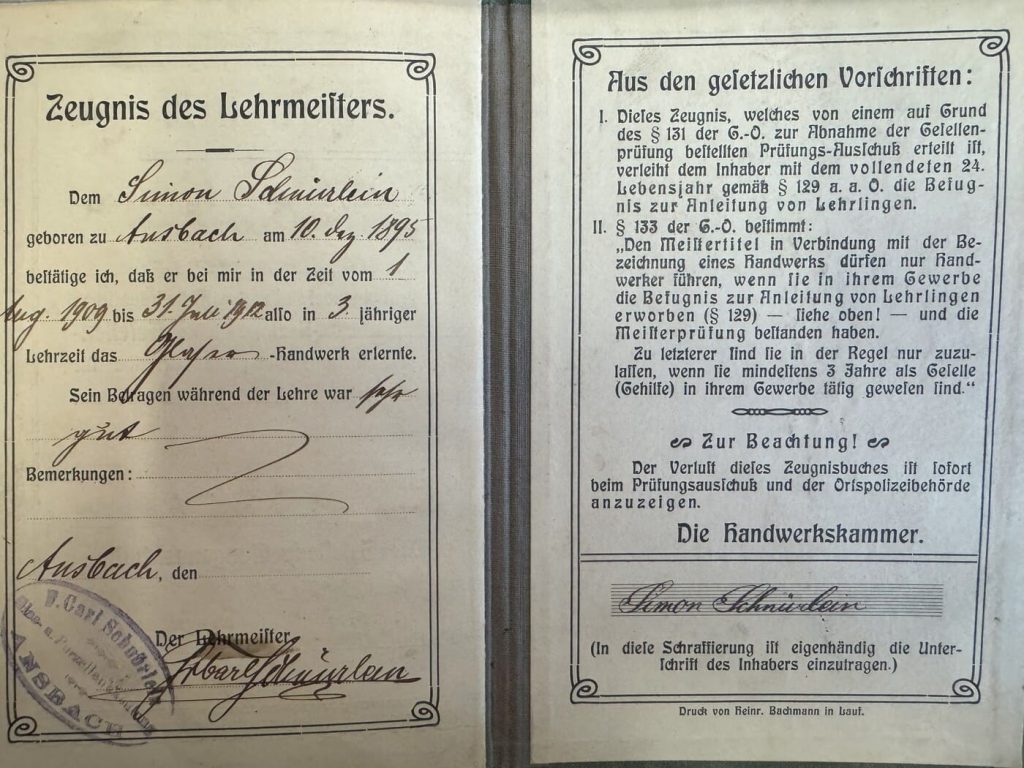 Zeugnis des Lehrmeisters.
Dem Simon Schnürlein
geboren zu Ansbach am 10. Dez 1895
bestätige ich, daß er bei mir in der Zeit vom 1
Aug. 1909 bis 31. Juli 1912 also in 3 jähriger
Lehrzeit das Glaser-Handwerk erlernte.
Sein Betragen während der Lehre war sehr
gut
Bemerkungen:
Ansbach, den
Der Lehrmeister
Carl Schnürlein
Carl Schnürlein
ANSBACH
Aus den gesetzlichen Vorschriften:
I. Dieses Zeugnis, welches von einem auf Grund
des § 131 der G.-O. zur Abnahme der Gesellen-
prüfung bestellten Prüfungs-Ausschuß erteilt ist,
verleiht dem Inhaber mit dem vollendeten 24.
Lebensjahr gemäß § 129 a. a. O. die Befug-
nis zur Anleitung von Lehrlingen.
II. § 133 der G.-O. bestimmt:
„Den Meistertitel in Verbindung mit der Be-
zeichnung eines Handwerks dürfen nur Hand-
werker führen, wenn sie in ihrem Gewerbe
die Befugnis zur Anleitung von Lehrlingen
erworben (§ 129) — siehe oben! — und die
Meisterprüfung bestanden haben.
Zu letzterer sind sie in der Regel nur zuzu-
lassen, wenn sie mindestens 3 Jahre als Geselle
(Gehilfe) in ihrem Gewerbe tätig gewesen sind.“
Zur Beachtung!
Der Verlust dieses Zeugnisbuches ist sofort
beim Prüfungsausschuß und der Ortspolizeibehörde
anzuzeigen.
Die Handwerkskammer.
Simon Schnürlein
(In diese Schraffierung ist eigenhändig die Unter-
schrift des Inhabers einzutragen.)
Druck von Heinr. Bachmann in Lauf.